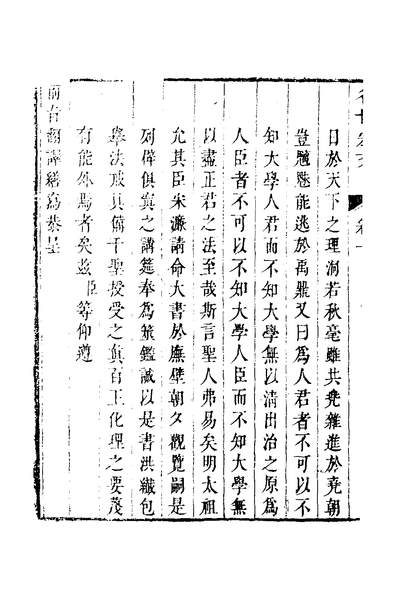 日於天下之理洞若秋毫雖共兜雜進於堯朝
豈魑魅能逃於禹鼎又曰為人君者不可以不
知大學人君而不知大學無以清出治之原為
人臣者不可以不知大學人臣而不知大學無
以盡正君之法至哉斯言聖人弗易矣明太祖
允其臣宋濂請命大書於廡壁朝夕觀覽嗣是
列辟俱寘之講筵奉為箴鑑誠以是書洪纖包
舉法戒具備千聖授受之真百王化理之要茂
有能外焉者矣茲臣等仰遵
前旨翻譯繕寫恭呈